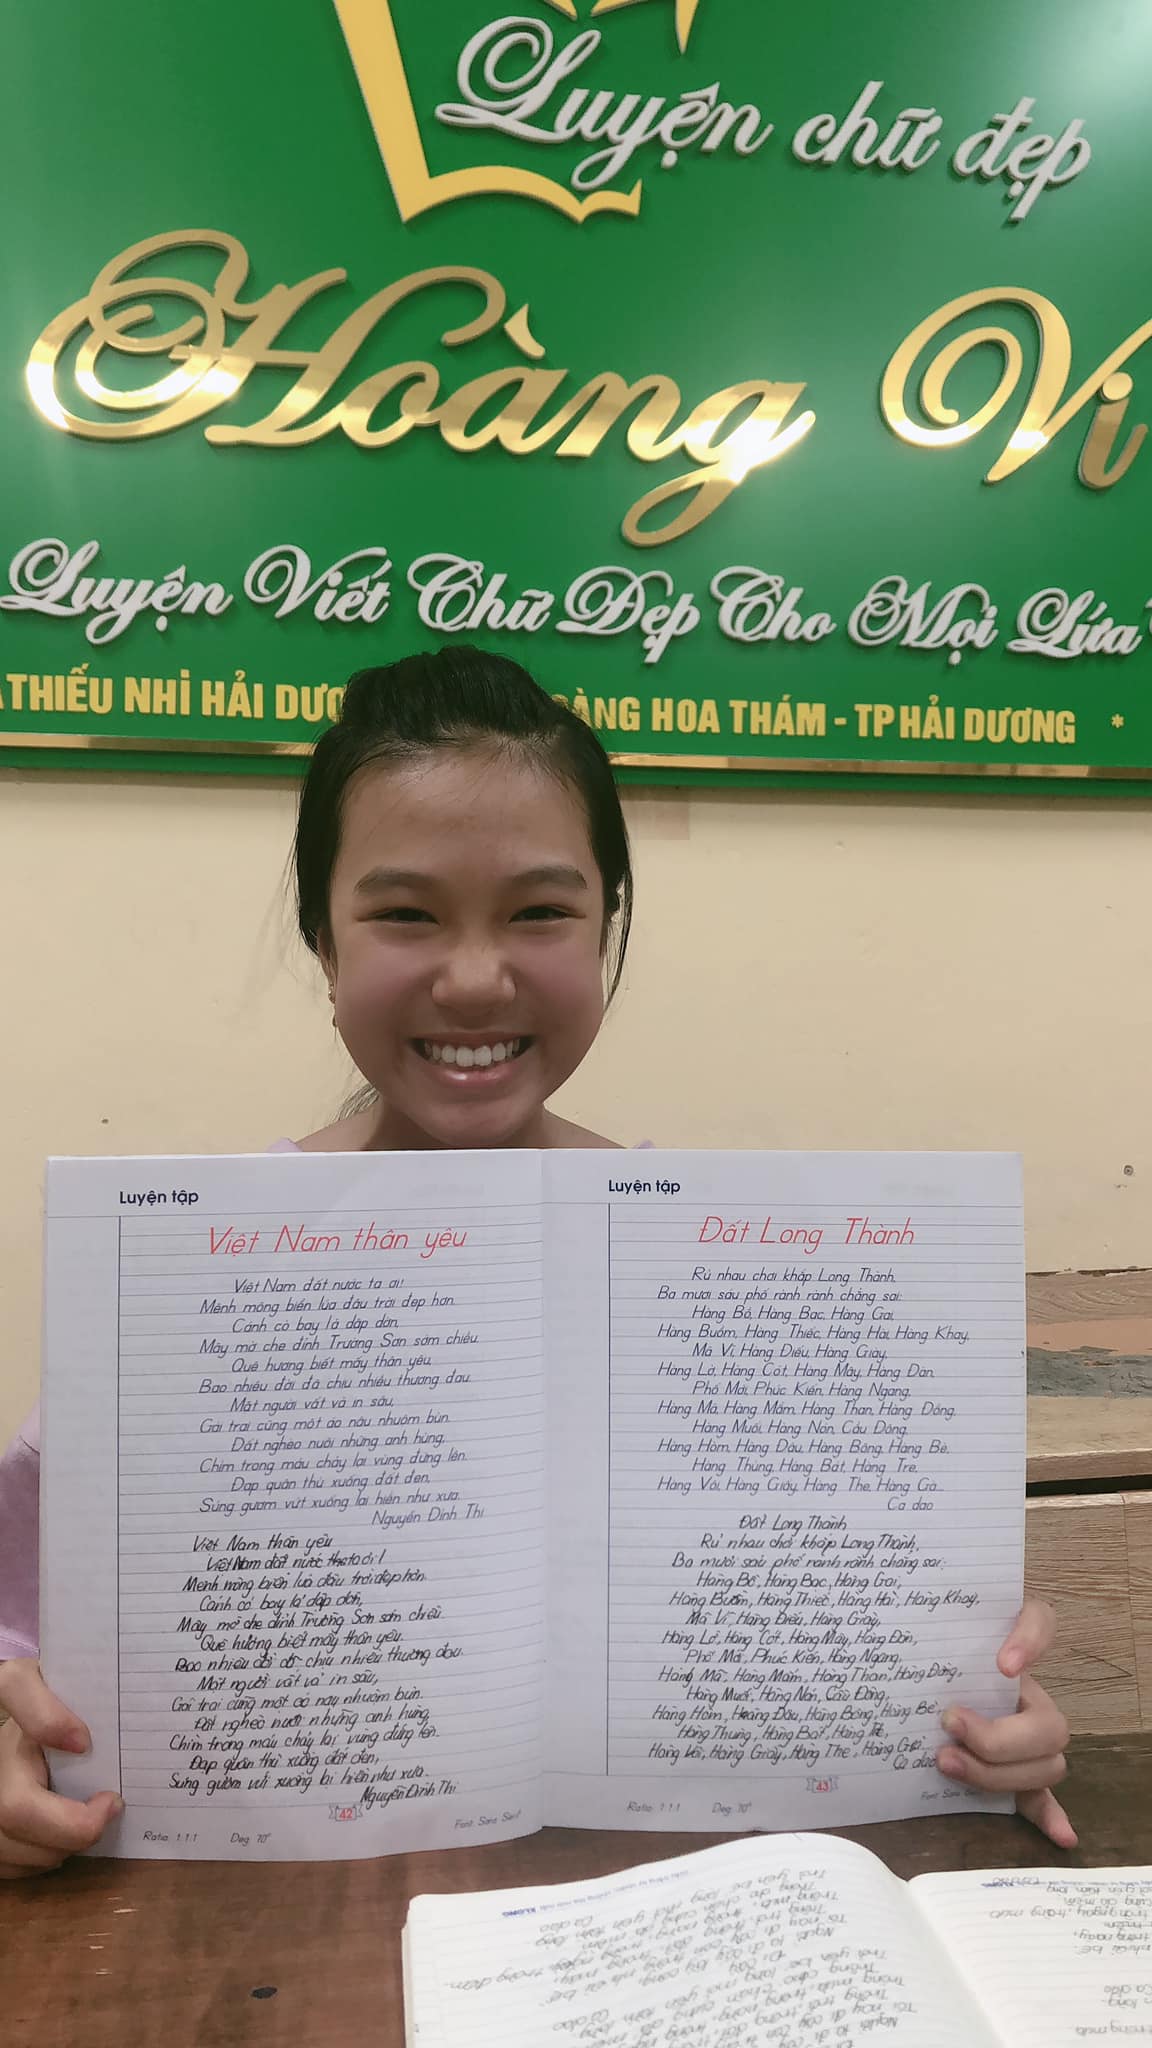 Luyện chữ đẹp
Hoàng Vi
Luyện Viết Chữ Đẹp Cho Mọi Lứa
THIẾU NHI HẢI DƯƠ
ÀNG HOA THÁM - TP HẢI DƯƠNG *
Luyện tập
Việt Nam thân yêu
Việt Nam đất nước ta ơi!
Mênh mông biển lúa đâu trời đẹp hơn.
Cánh cò bay lả dập dờn,
Mây mờ che đỉnh Trường Sơn sớm chiều.
Quê hương biết mấy thân yêu,
Bao nhiêu đời đã chịu nhiều thương đau.
Mặt người vất vả in sâu,
Gái trai cũng một áo nâu nhuộm bùn.
Đất nghèo nuôi những anh hùng,
Chìm trong máu chảy lại vùng đứng lên.
Đạp quân thù xuống đất đen,
Súng gươm vứt xuống lại hiền như xưa.
Nguyễn Đình Thi
Việt Nam thân yêu
Việt Nam đất nước ta ơi!
Mênh mông biển lúa đâu trời đẹp hơn.
Cánh cò bay lả dập dờn,
Mây mờ che đỉnh Trường Sơn sớm chiều.
Quê hương biết mấy thân yêu.
Bao nhiêu đời đã chịu nhiều thương đau.
Mặt người vất vả in sâu,
Gái trai cũng một áo nâu nhuộm bùn.
Đất nghèo nuôi những anh hùng,
Chìm trong máu chảy lại vùng đứng lên.
Đạp quân thù xuống đất đen,
Súng gươm vứt xuống lại hiền như xưa.
Nguyễn Đình Thi
42
Ratio: 1:1:1 Deg: 70° Font: Sans Serif
Luyện tập
Đất Long Thành
Rủ nhau chơi khắp Long Thành,
Ba mươi sáu phố rành rành chẳng sai:
Hàng Bồ, Hàng Bạc, Hàng Gai,
Hàng Buồm, Hàng Thiếc, Hàng Hài, Hàng Khay,
Mã Vĩ, Hàng Điếu, Hàng Giày,
Hàng Lờ, Hàng Cót, Hàng Mây, Hàng Đàn,
Phố Mới, Phúc Kiến, Hàng Ngang,
Hàng Mã, Hàng Mắm, Hàng Than, Hàng Đồng,
Hàng Muối, Hàng Nón, Cầu Đông,
Hàng Hòm, Hàng Đậu, Hàng Bông, Hàng Bè,
Hàng Thùng, Hàng Bát, Hàng Tre,
Hàng Vôi, Hàng Giấy, Hàng The, Hàng Gà...
Ca dao
Đất Long Thành
Rủ nhau chơi khắp Long Thành,
Ba mươi sáu phố rành rành chẳng sai:
Hàng Bồ, Hàng Bạc, Hàng Gai,
Hàng Buồm, Hàng Thiếc, Hàng Hài, Hàng Khay,
Mã Vĩ, Hàng Điếu, Hàng Giày,
Hàng Lờ, Hàng Cót, Hàng Mây, Hàng Đàn,
Phố Mới, Phúc Kiến, Hàng Ngang,
Hàng Mã, Hàng Mắm, Hàng Than, Hàng Đồng,
Hàng Muối, Hàng Nón, Cầu Đông,
Hàng Hòm, Hàng Đậu, Hàng Bông, Hàng Bè,
Hàng Thùng, Hàng Bát, Hàng Tre,
Hàng Vôi, Hàng Giấy, Hàng The, Hàng Gà...
Ca dao
43
Ratio: 1:1:1 Deg: 70° Font: Sans